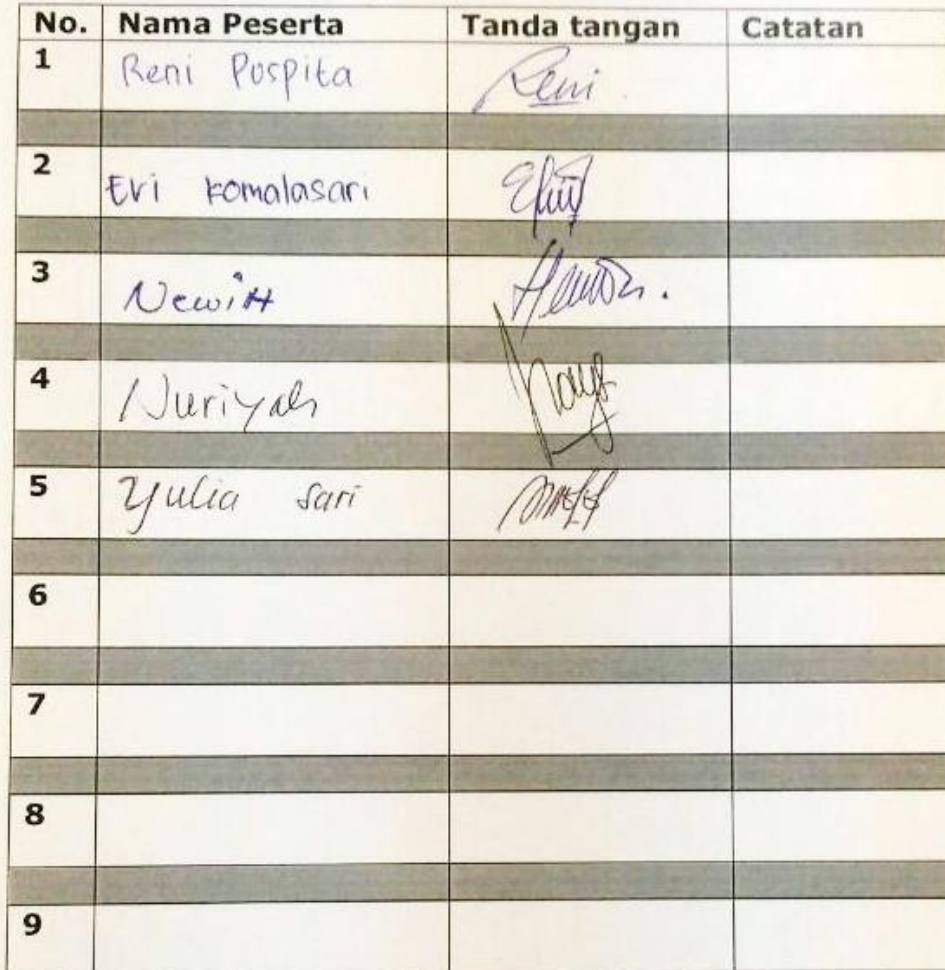 No. Nama Peserta Tanda tangan Catatan
1 Reni Puspita Reni
2 Evi Komalasari
3
4 Nuriyah
5 Yulia Sari
6
7
8
9